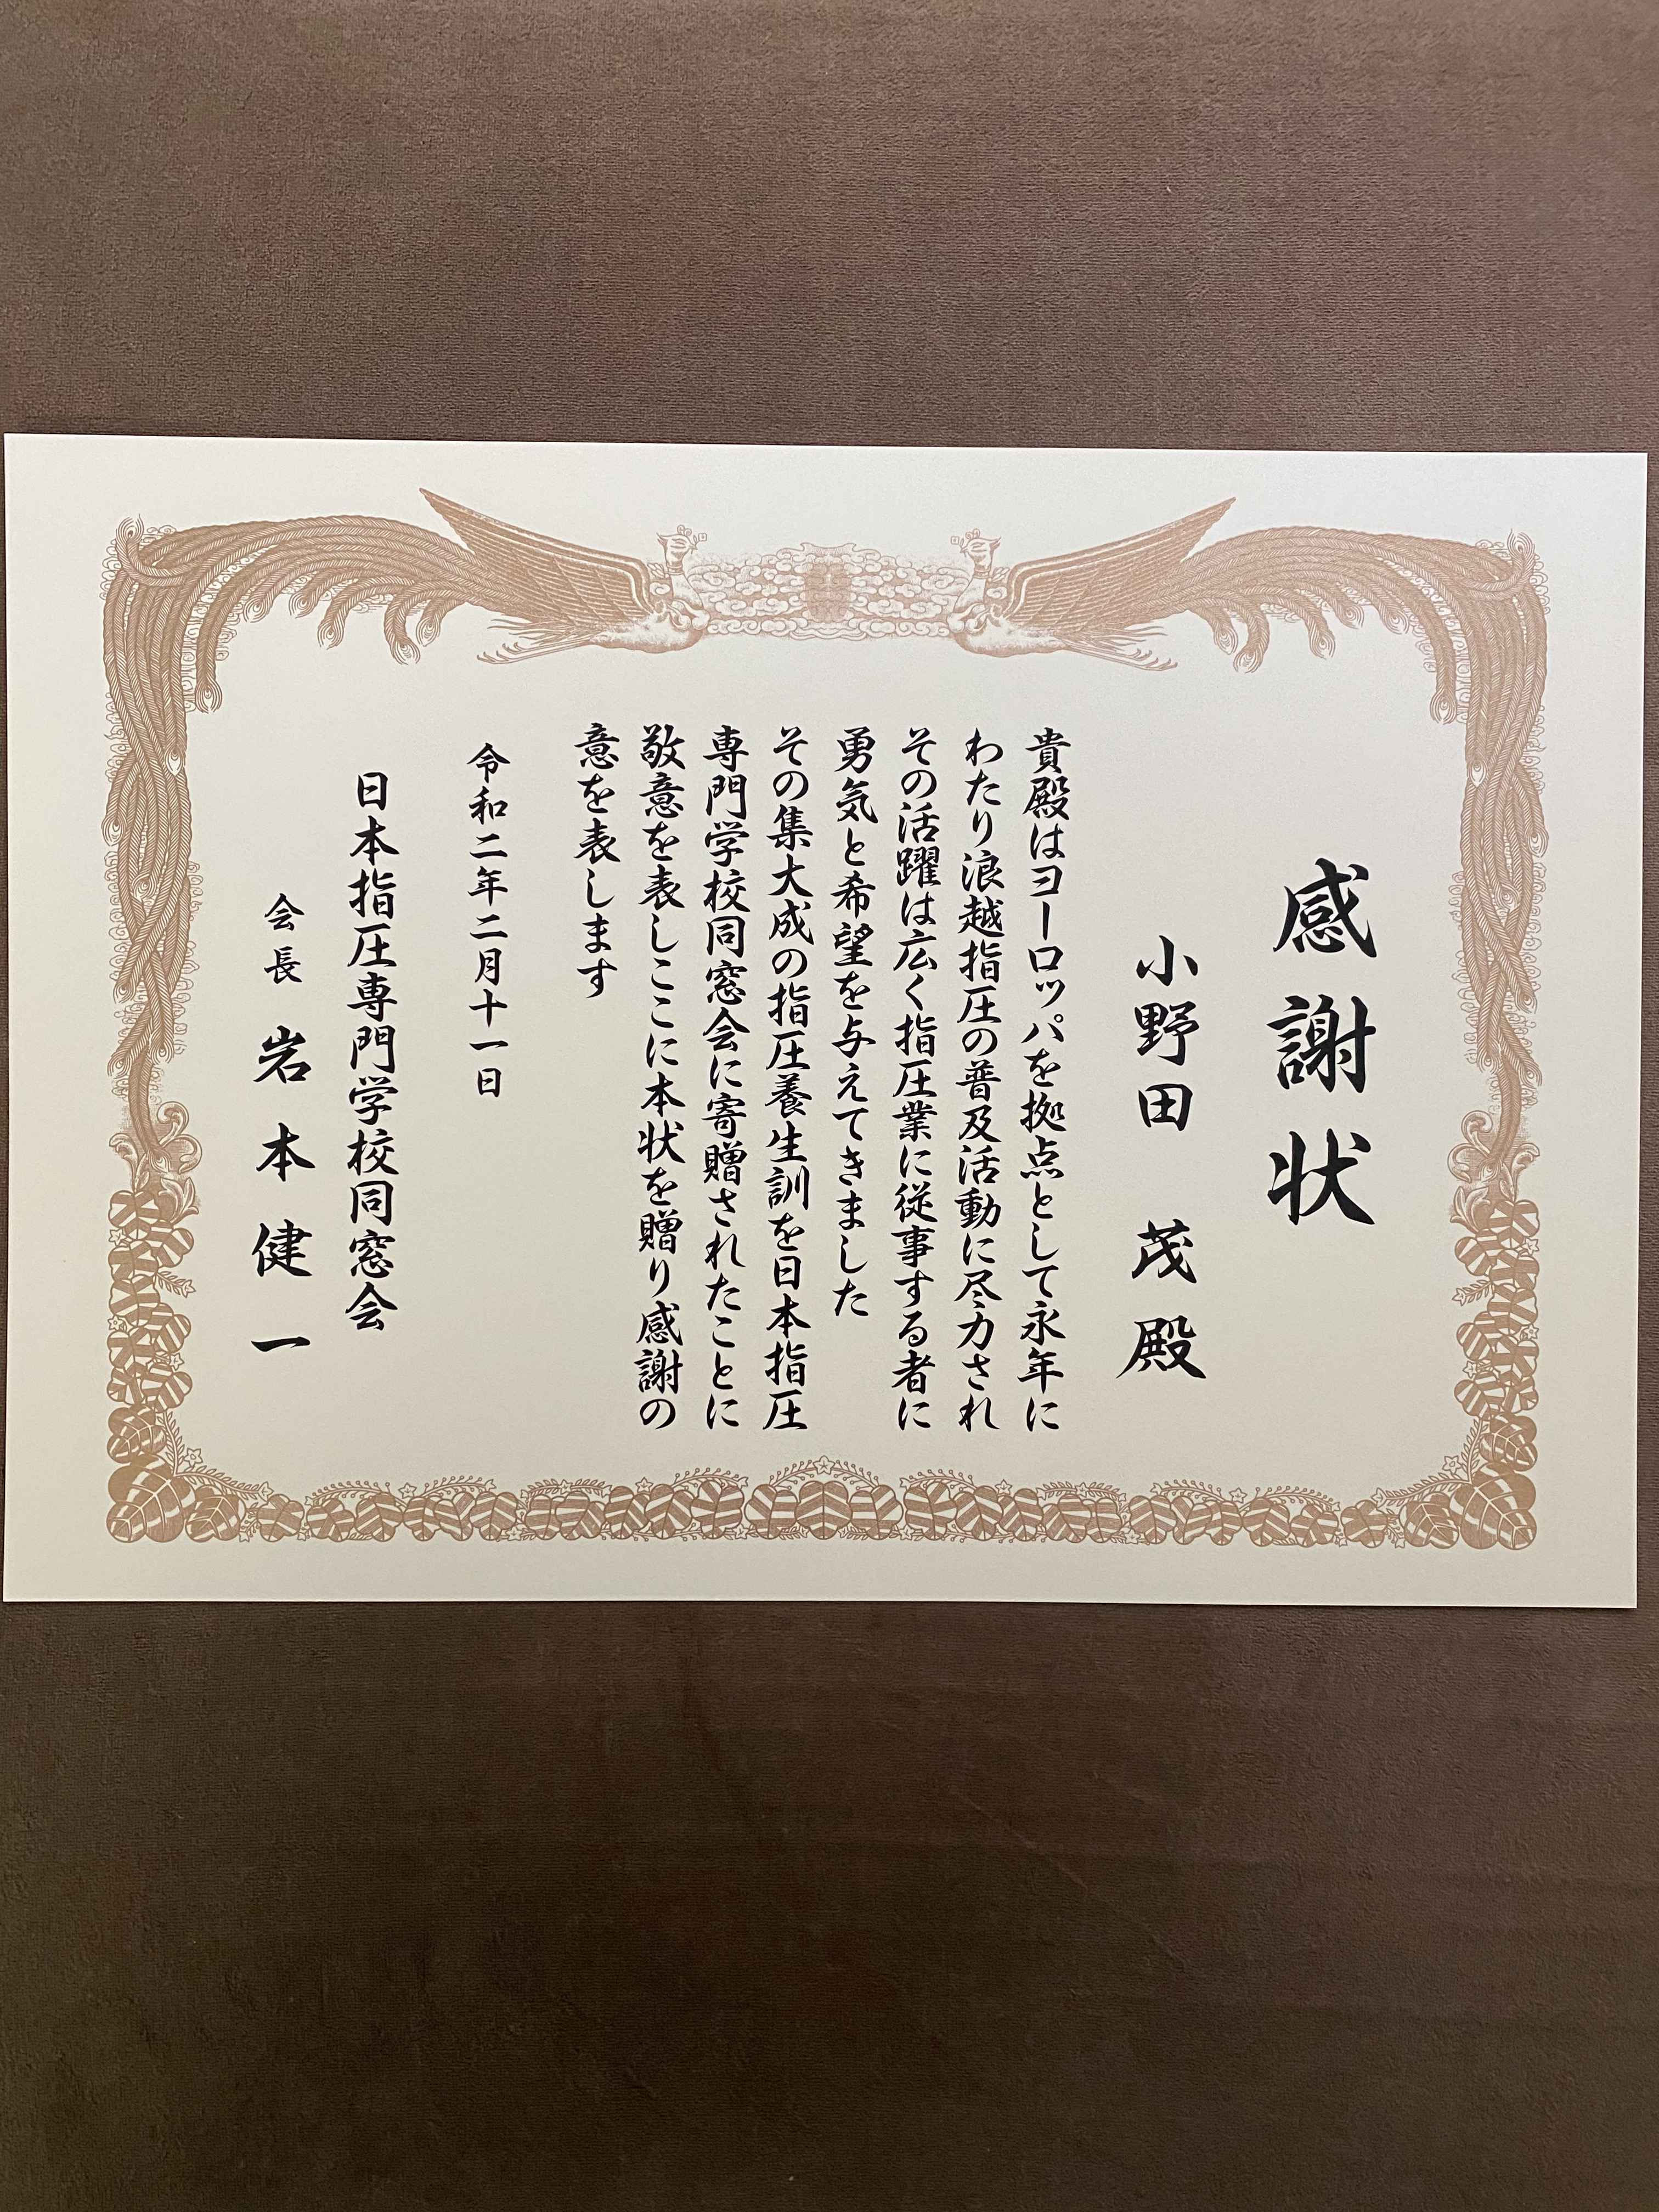 感謝状
小野田 茂 殿
貴殿はヨーロッパを拠点として永年に
わたり浪越指圧の普及活動に尽力され
その活躍は広く指圧業に従事する者に
勇気と希望を与えてきました
その集大成の指圧養生訓を日本指圧
専門学校同窓会に寄贈されたことに
敬意を表しここに本状を贈り感謝の
意を表します
令和二年二月十一日
日本指圧専門学校同窓会
会長 岩本健一